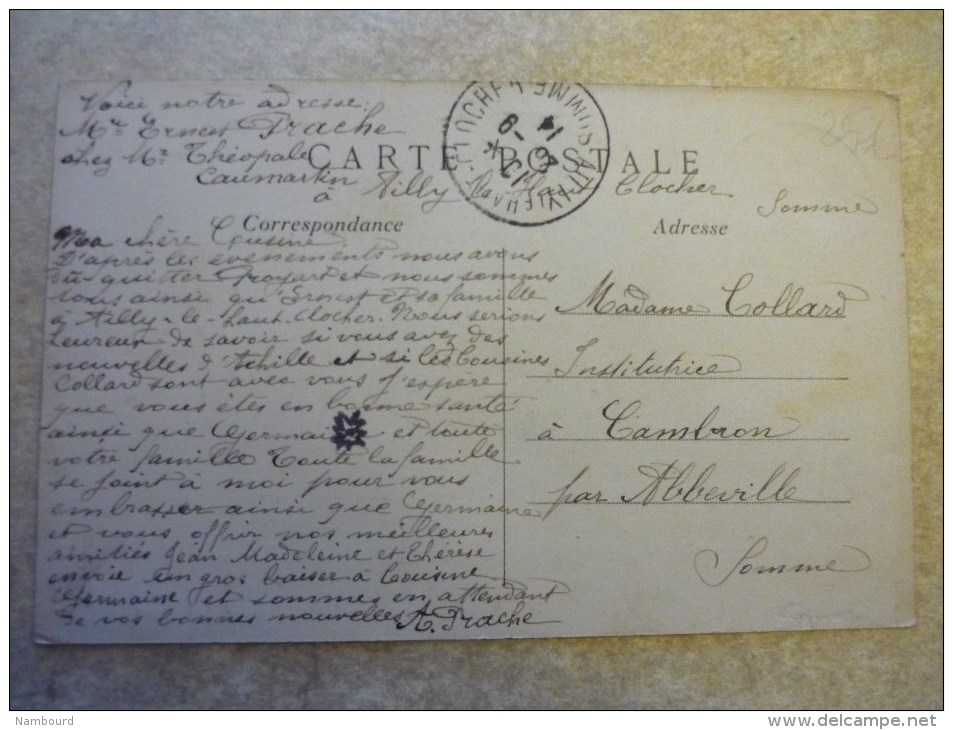 Voici notre adresse:
Mr Ernest Prache
chez Mr Théopale
CARTE POSTALE
Caumartin
à Ailly le Haut Clocher
Somme
Correspondance
Adresse
Ma chère Cousine.
D'après les évenements nous avons
du quitter Proyart et nous sommes
tous ainsi qu'Ernest et sa famille
à Ailly-le-haut-clocher. Nous serions
heureux de savoir si vous avez des
nouvelles d'Achille et si les Cousines
Collard sont avec vous J'espère
que vous êtes en bonne santé
ainsi que Germaine et toute
votre famille Toute la famille
se joint à moi pour vous
embrasser ainsi que Germaine
et vous offrir nos meilleures
amitiés Jean Madeleine et Thérèse
envoie un gros baiser à Cousine
Germaine et sommes en attendant
de vos bonnes nouvelles A. Prache
Madame Collard
Institutrice
à Cambron
par Abbeville
Somme
Nambourd
www.delcampe.net